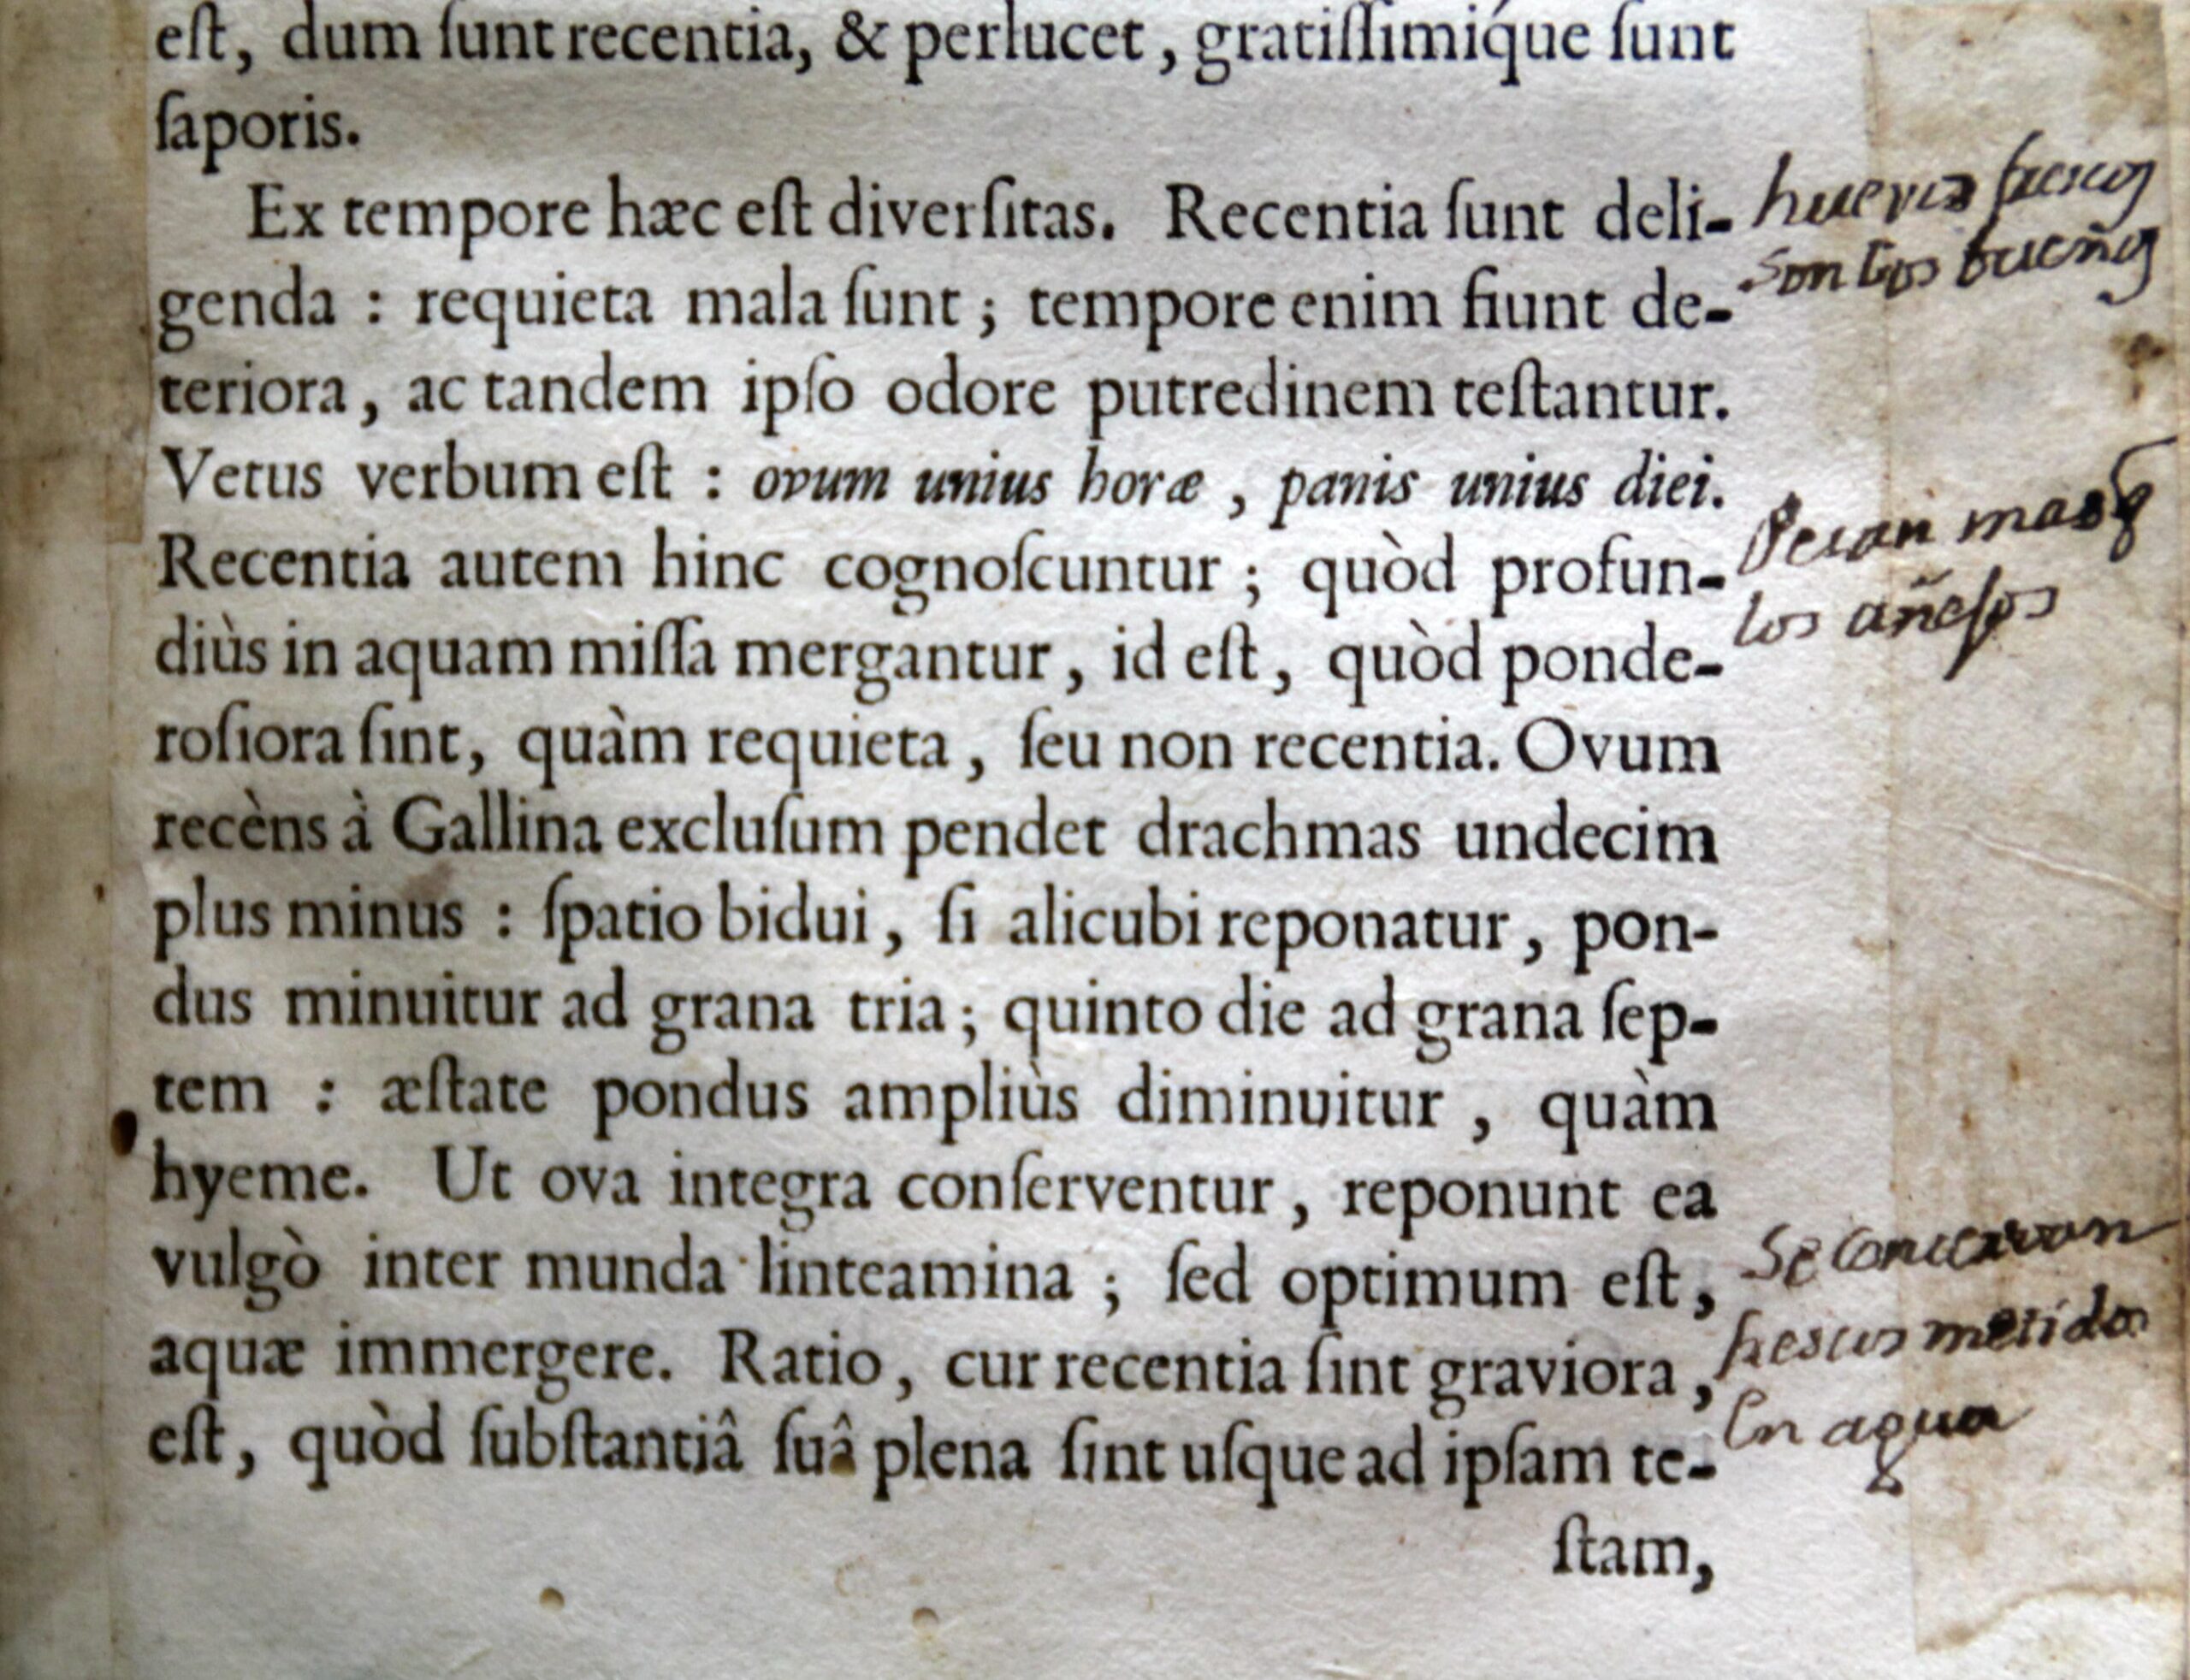 eſt, dum ſunt recentia, & perlucet, gratiſſimiq́ue ſunt
ſaporis.
Ex tempore hæc eſt diverſitas. Recentia ſunt deli-
genda : requieta mala ſunt ; tempore enim fiunt de-
teriora, ac tandem ipſo odore putredinem teſtantur.
Vetus verbum eſt : ovum unius horæ, panis unius diei.
Recentia autem hinc cognoſcuntur ; quòd profun-
diùs in aquam miſſa mergantur, id eſt, quòd ponde-
roſiora ſint, quàm requieta, ſeu non recentia. Ovum
recèns à Gallina excluſum pendet drachmas undecim
plus minus : ſpatio bidui, ſi alicubi reponatur, pon-
dus minuitur ad grana tria ; quinto die ad grana ſep-
tem : æſtate pondus ampliùs diminuitur, quàm
hyeme. Ut ova integra conſerventur, reponunt ea
vulgò inter munda linteamina ; ſed optimum eſt,
aquæ immergere. Ratio, cur recentia ſint graviora,
eſt, quòd ſubſtantiâ ſuâ plena ſint uſque ad ipſam te-
ſtam,
huevos frescos
son los
Pesan mas q
los añejos
Se
frescos metidos
En agua